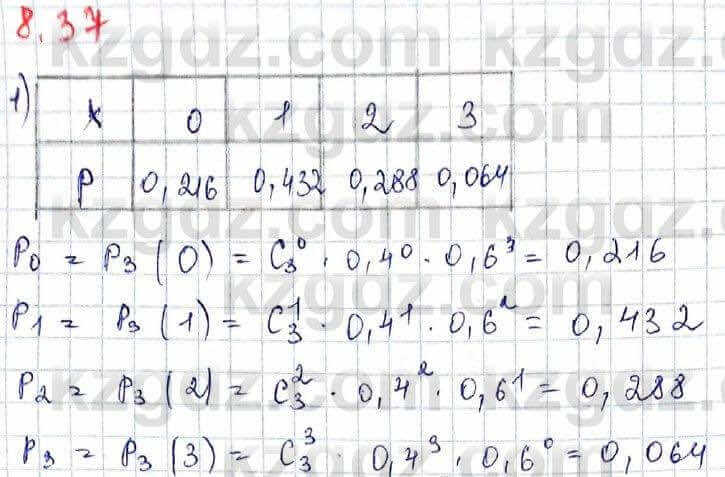 8.37
1)
x 0 1 2 3
P 0,216 0,432 0,288 0,064
P₀ = P₃ (0) = C₃⁰ · 0,4⁰ · 0,6³ = 0,216
P₁ = P₃ (1) = C₃¹ · 0,4¹ · 0,6² = 0,432
P₂ = P₃ (2) = C₃² · 0,4² · 0,6¹ = 0,288
P₃ = P₃ (3) = C₃³ · 0,4³ · 0,6⁰ = 0,064
kzgdz.com